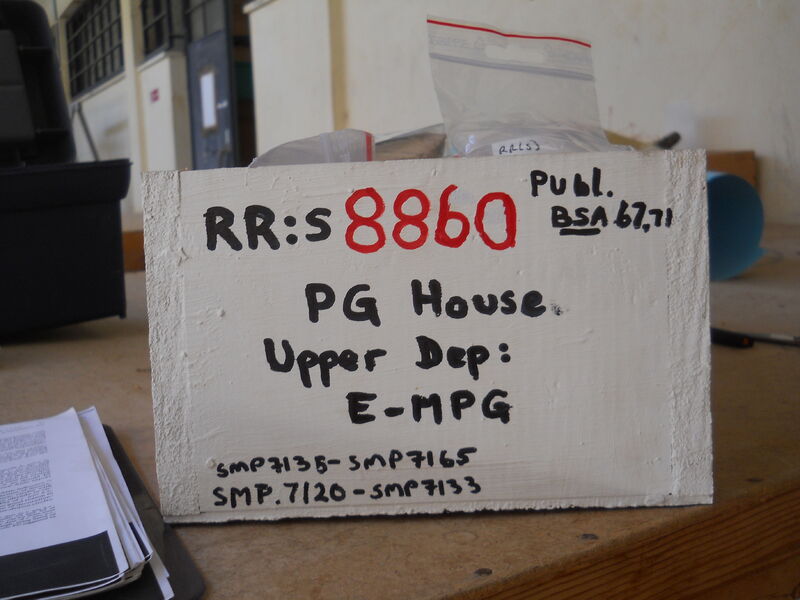 RR:S 8860
Publ.
BSA 67,71
PG House.
Upper Dep:
E-MPG
SMP7135-SMP7165
SMP.7120-SMP7133